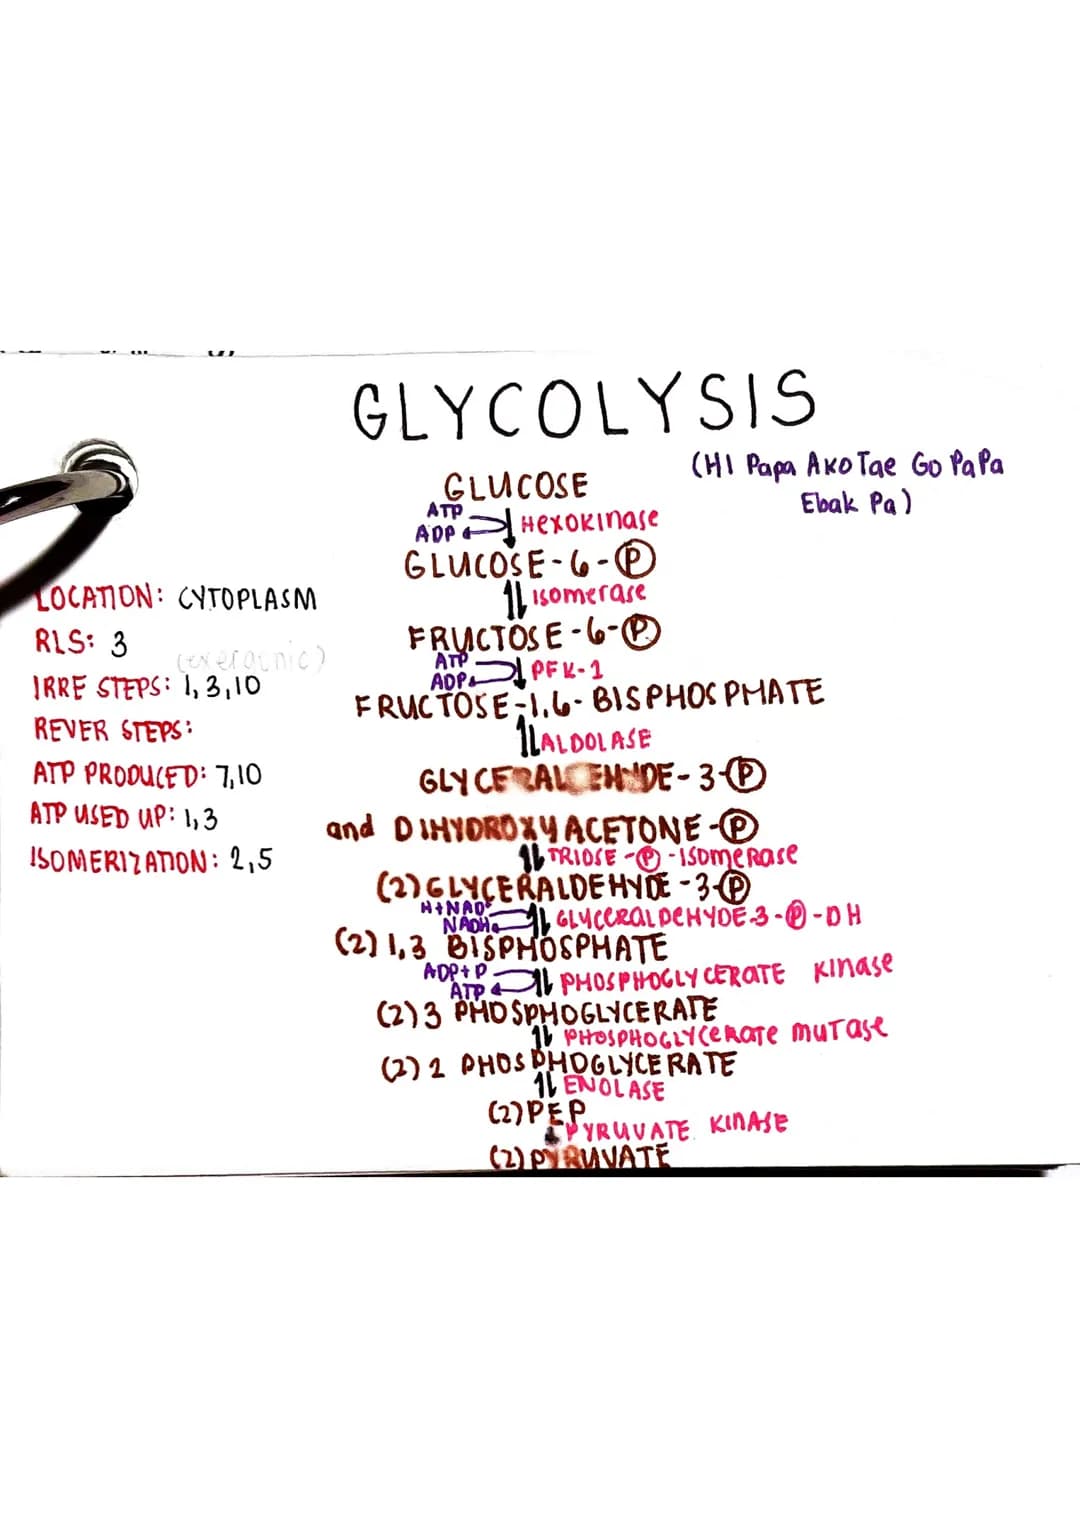 GLYCOLYSIS
(HI Papa Ako Tae Go PaPa
Ebak Pa)
GLUCOSE
ATP
ADP
Hexokinase
GLUCOSE-6-P
Isomerase
FRUCTOSE-6-P
ATP
ADP
PFK-1
FRUCTOSE-1,6-BISPHOSPHATE
ALDOLASE
GLYCERALDEHYDE-3-P
and DIHYDROXYACETONE-P
TRIOSE-P-ISOMERASE
(2) GLYCERALDEHYDE-3-P
H+NAD+
NADH
GLYCERALDEHYDE-3-P-DH
(2) 1,3 BISPHOSPHATE
ADP+P
ATP
PHOSPHOGLYCERATE KINASE
(2) 3 PHOSPHOGLYCERATE
PHOSPHOGLYCERATE MUTASE
(2) 2 PHOSPHOGLYCERATE
ENOLASE
(2) PEP
PYRUVATE KINASE
(2) PYRUVATE
LOCATION: CYTOPLASM
RLS: 3
(exergonic)
IRRE STEPS: 1,3,10
REVER STEPS:
ATP PRODUCED: 7,10
ATP USED UP: 1,3
ISOMERIZATION: 2,5